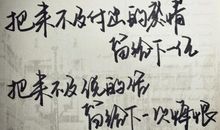 把来不及付出的感情
留给下一任
把来不及说的话
留给下一次悔恨